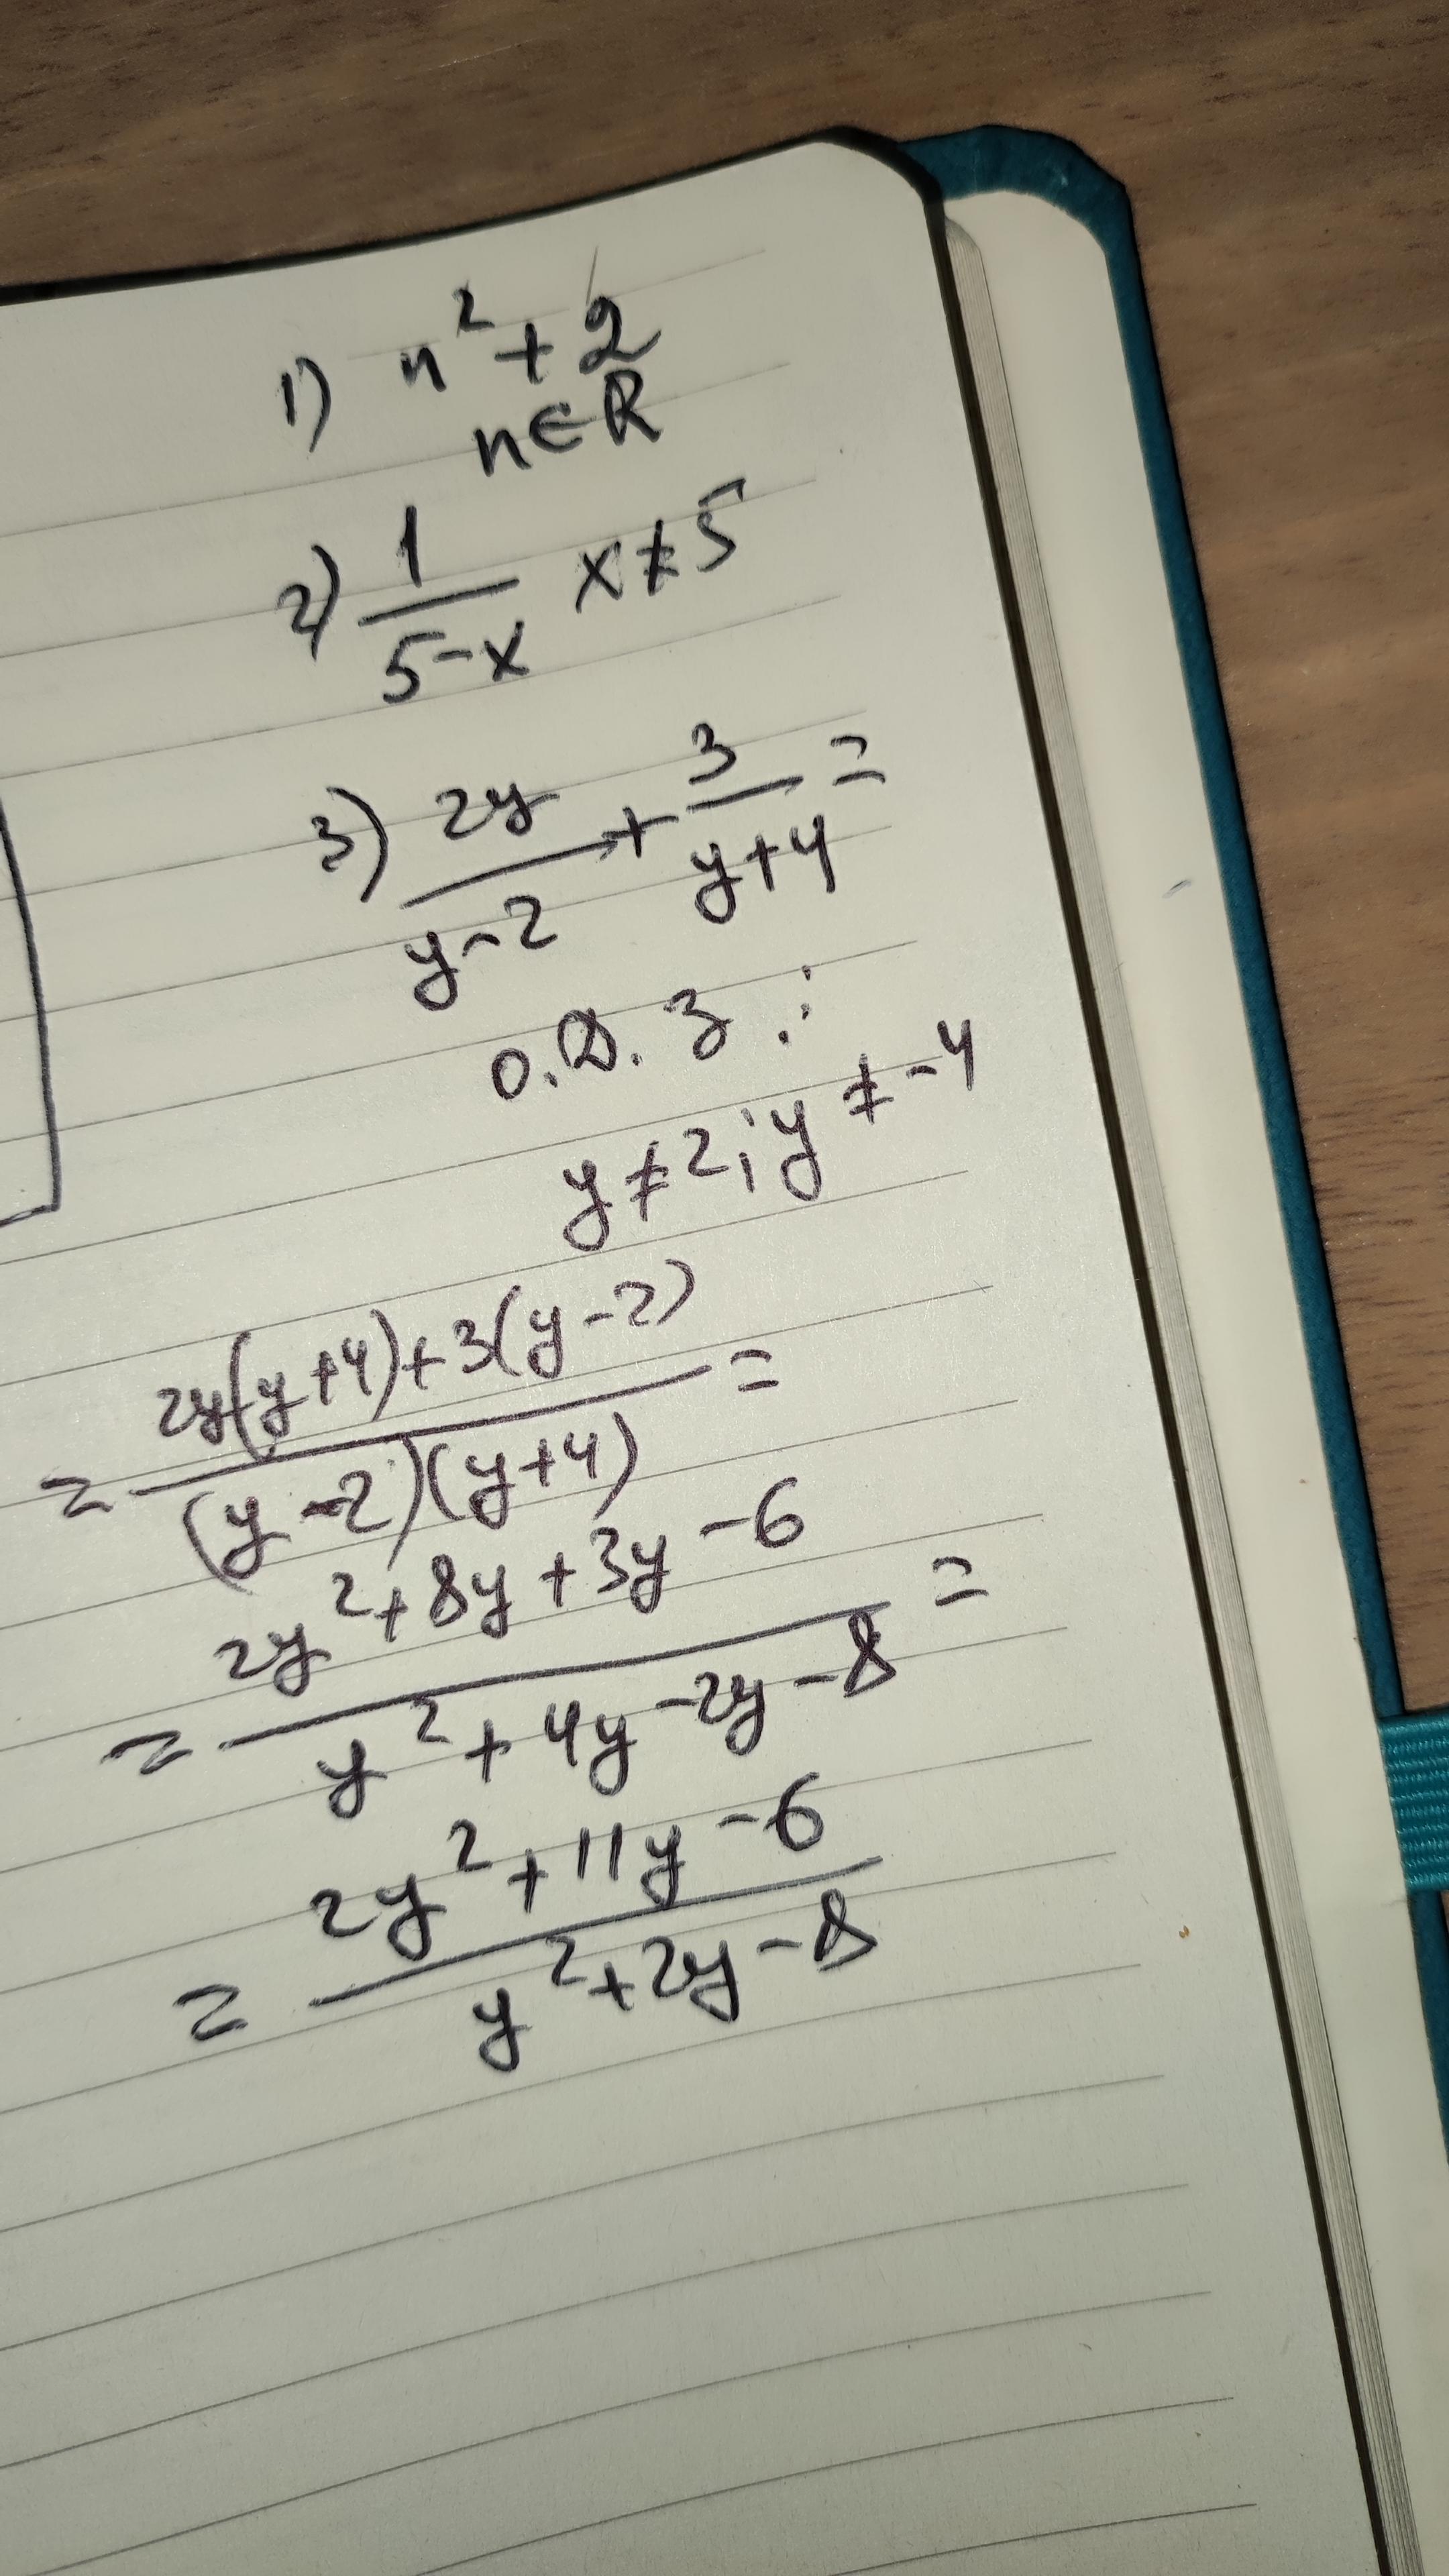 1) n² + 2
n∈R
2) 1/(5-x) x≠5
3) 2y/(y-2) + 3/(y+4) =
О.Д.З.:
y≠2; y≠-4
= (2y(y+4)+3(y-2))/((y-2)(y+4)) =
= (2y²+8y+3y-6)/(y²+4y-2y-8) =
= (2y²+11y-6)/(y²+2y-8)